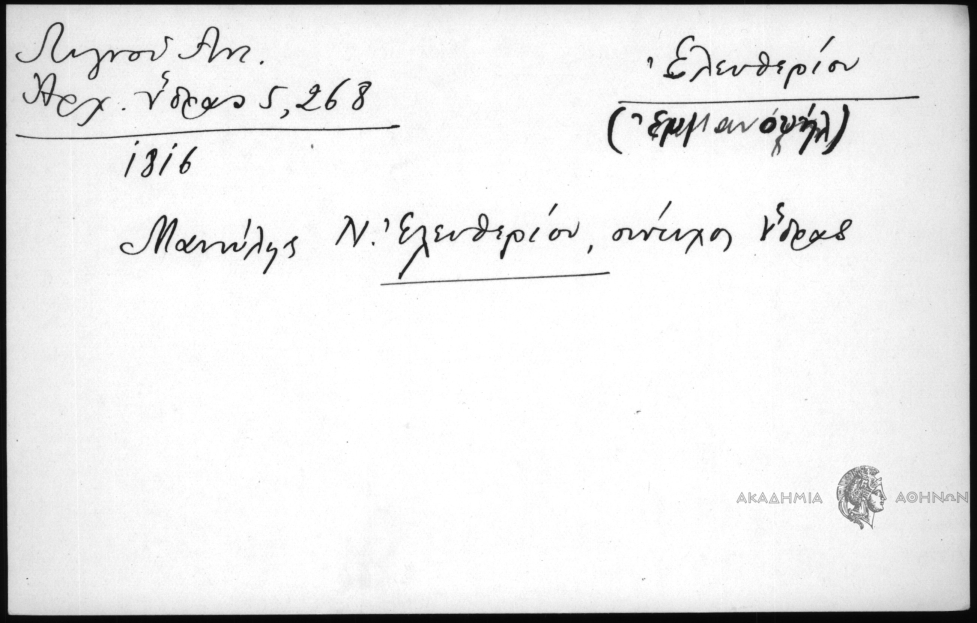 Λιγνού Αντ.
Ἀρχ. Ὕδρας 5, 268
1816
Ἐλευθερίου
(Ἐμμανουήλ)
Μανώλης Ν. Ἐλευθερίου, σύνευνος Ὕδρας
ΑΚΑΔΗΜΙΑ ΑΘΗΝΩΝ